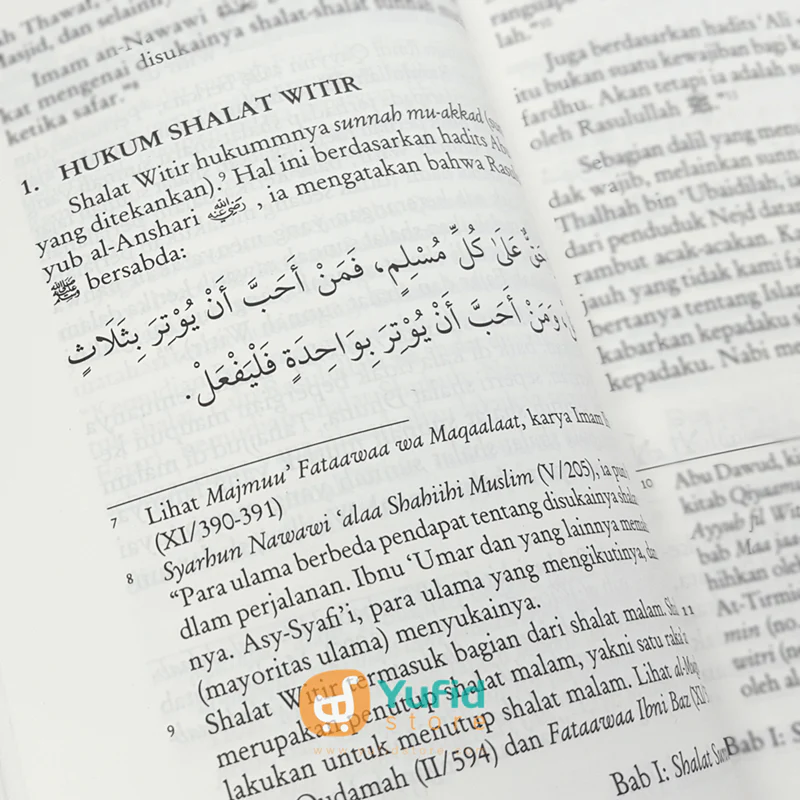 ah Thawaf,
Masjid, dan selainnya
Imam an-Nawawi
kat mengenai disukainya shalat-shalat sunnah
ketika safar."⁸
1. HUKUM SHALAT WITIR
Shalat Witir hukummnya sunnah mu-akkad
yang ditekankan).⁹ Hal ini berdasarkan hadits
yub al-Anshari رضي الله عنه , ia mengatakan bahwa
ﷺ bersabda:
عَلَى كُلِّ مُسْلِمٍ، فَمَنْ أَحَبَّ أَنْ يُوْتِرَ بِثَلَاثٍ
وَمَنْ أَحَبَّ أَنْ يُوْتِرَ بِوَاحِدَةٍ فَلْيَفْعَلْ.
7 Lihat Majmuu' Fataawaa wa Maqaalaat, karya Imam
(XI/390-391)
8 Syarhun Nawawi 'alaa Shahiihi Muslim (V/205), ia
"Para ulama berbeda pendapat tentang disukainya
dlam perjalanan. Ibnu 'Umar dan yang lainnya
nya. Asy-Syafi'i, para ulama yang mengikutinya,
(mayoritas ulama) menyukainya.
9 Shalat Witir termasuk bagian dari shalat malam.
merupakan penutup shalat malam, yakni satu
lakukan untuk menutup shalat malam. Lihat
Qudamah (II/594) dan Fataawaa Ibni Baz
Bab I: Shalat
rangupa
lah."
Juga berdasarkan hadits 'Ali
itu bukan suatu kewajiban bagi
fardhu. Akan tetapi ia adalah
oleh Rasulullah ﷺ."
Sebagian dalil yang
dak wajib, melainkan
Thalhah bin 'Ubaidilah, ia
dari penduduk Nejd
rambut acak-acakan.
jauh yang tidak kami
bertanya tentang
kabarkan kepadaku
kepadaku. Nabi
10 Abu Dawud,
kitab
Ayyub fil
bab Maa
hihkan
At-Tirmi
min (no.
witri (no
oleh al
11
Bab I:
Yufid
store
www.yufidstore.com